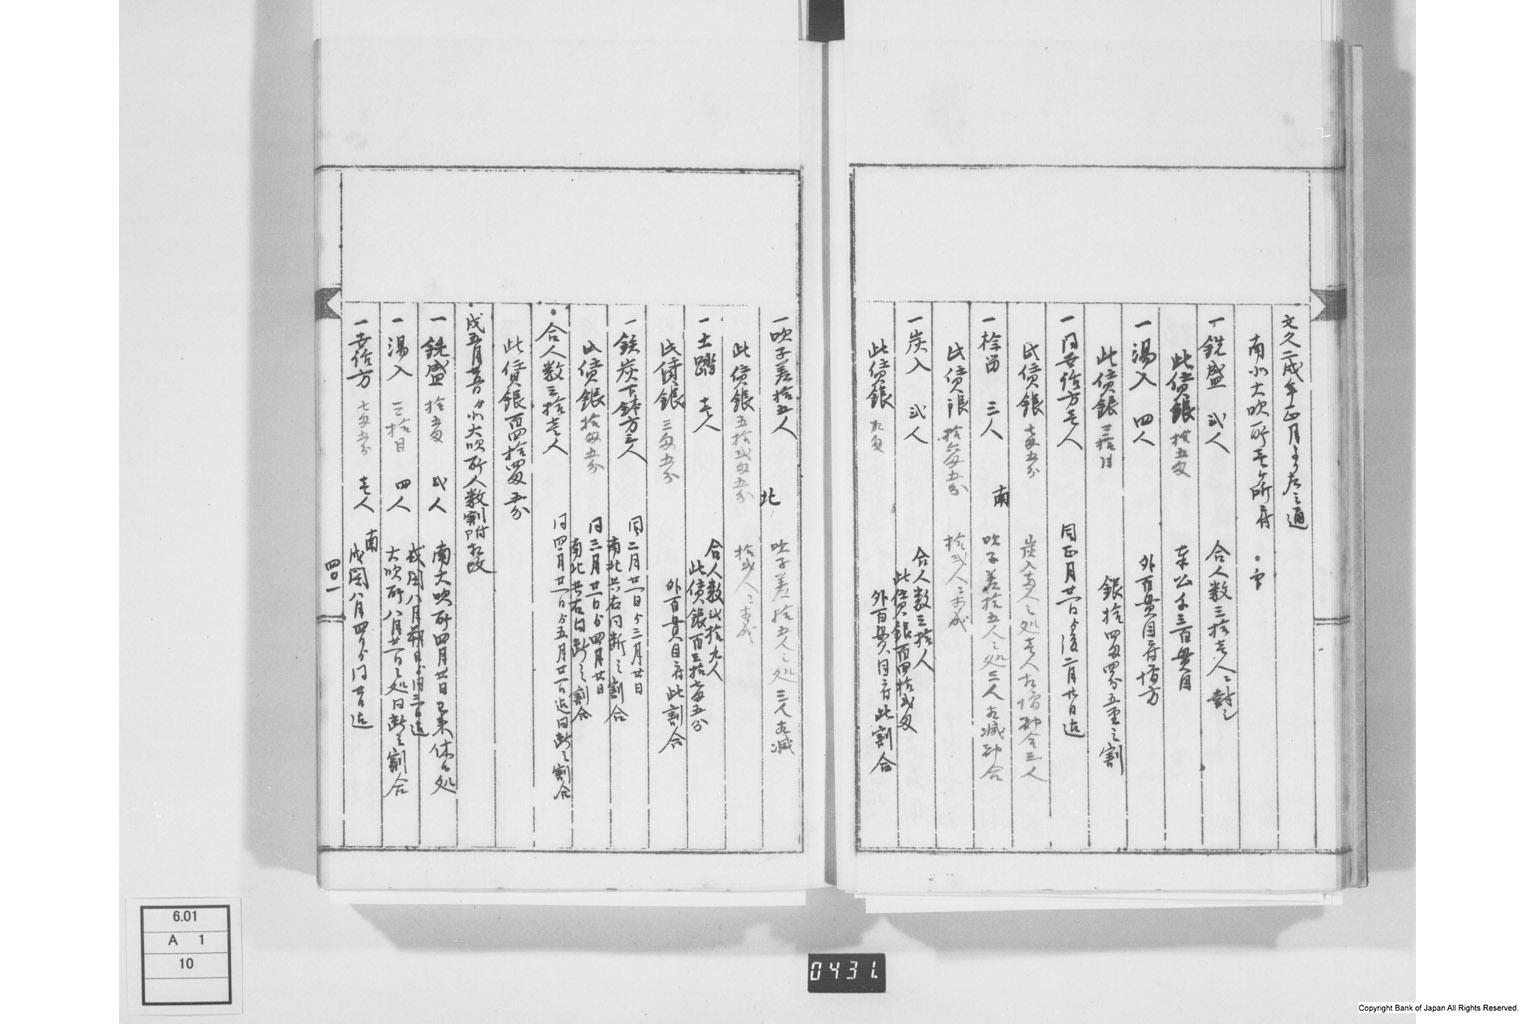 文久二戌年正月より左之通
南北大吹所壱ヶ所ニ付
一銑盛 弐人 合人数三拾壱人ニ割
此賃銀 拾五匁 壱〆三百貫目
一湯入 四人 外百貫目ニ付増方
此賃銀 三拾目 銀拾四匁四分五厘之割
一同世話方壱人 同正月廿一日より後二月廿日迄
此賃銀 七匁五分 炭入弐人之処壱人相増都合三人
一棒留 三人 南 吹子差拾五人之処三人相減都合
此賃銀 拾六匁五分 拾弐人ニ相成
一炭入 弐人 合人数三拾人
此賃銀百四拾弐匁
此賃銀 九匁 外百貫目ニ付此割合
一吹子差拾五人 北 吹子差拾五人之処三人相減
此賃銀 五拾弐匁五分 拾弐人ニ相成
一土踏 壱人 合人数弐拾九人
此賃銀百三拾七匁五分
此賃銀 三匁五分 外百貫目ニ付此割合
一鉄炭下鉢方三人 同二月廿一日より三月廿日
南北共右同断之割合
此賃銀 拾匁五分 同三月廿一日より四月廿日
南北共右同断之割合
合人数三拾壱人 同四月廿一日より五月廿一日迄同断之割合
此賃銀百四拾四匁五分
戌五月廿五日より北大吹所人数割附相改
一銑盛 拾五匁 弐人 南大吹所四月廿日已来休之処
一湯入 三拾目 四人 大吹所八月廿一日之処同断之割合
一世話方 七匁五分 壱人 南 戌閏八月四日より同廿日迄
四〇一
6.01
A 1
10
0431.
Copyright Bank of Japan All Rights Reserved.